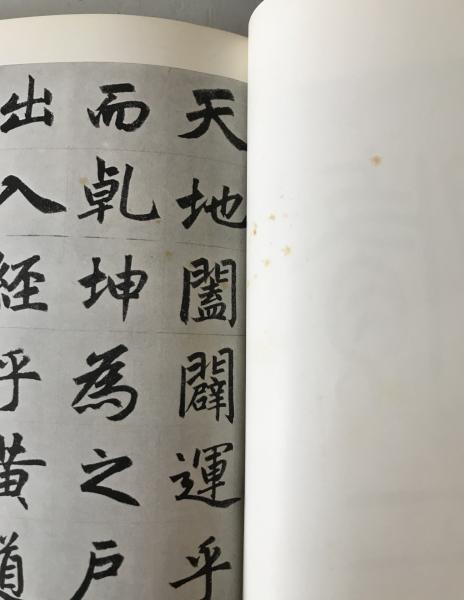 天地闔闢運乎
而乹坤為之戶
出入経乎黄道